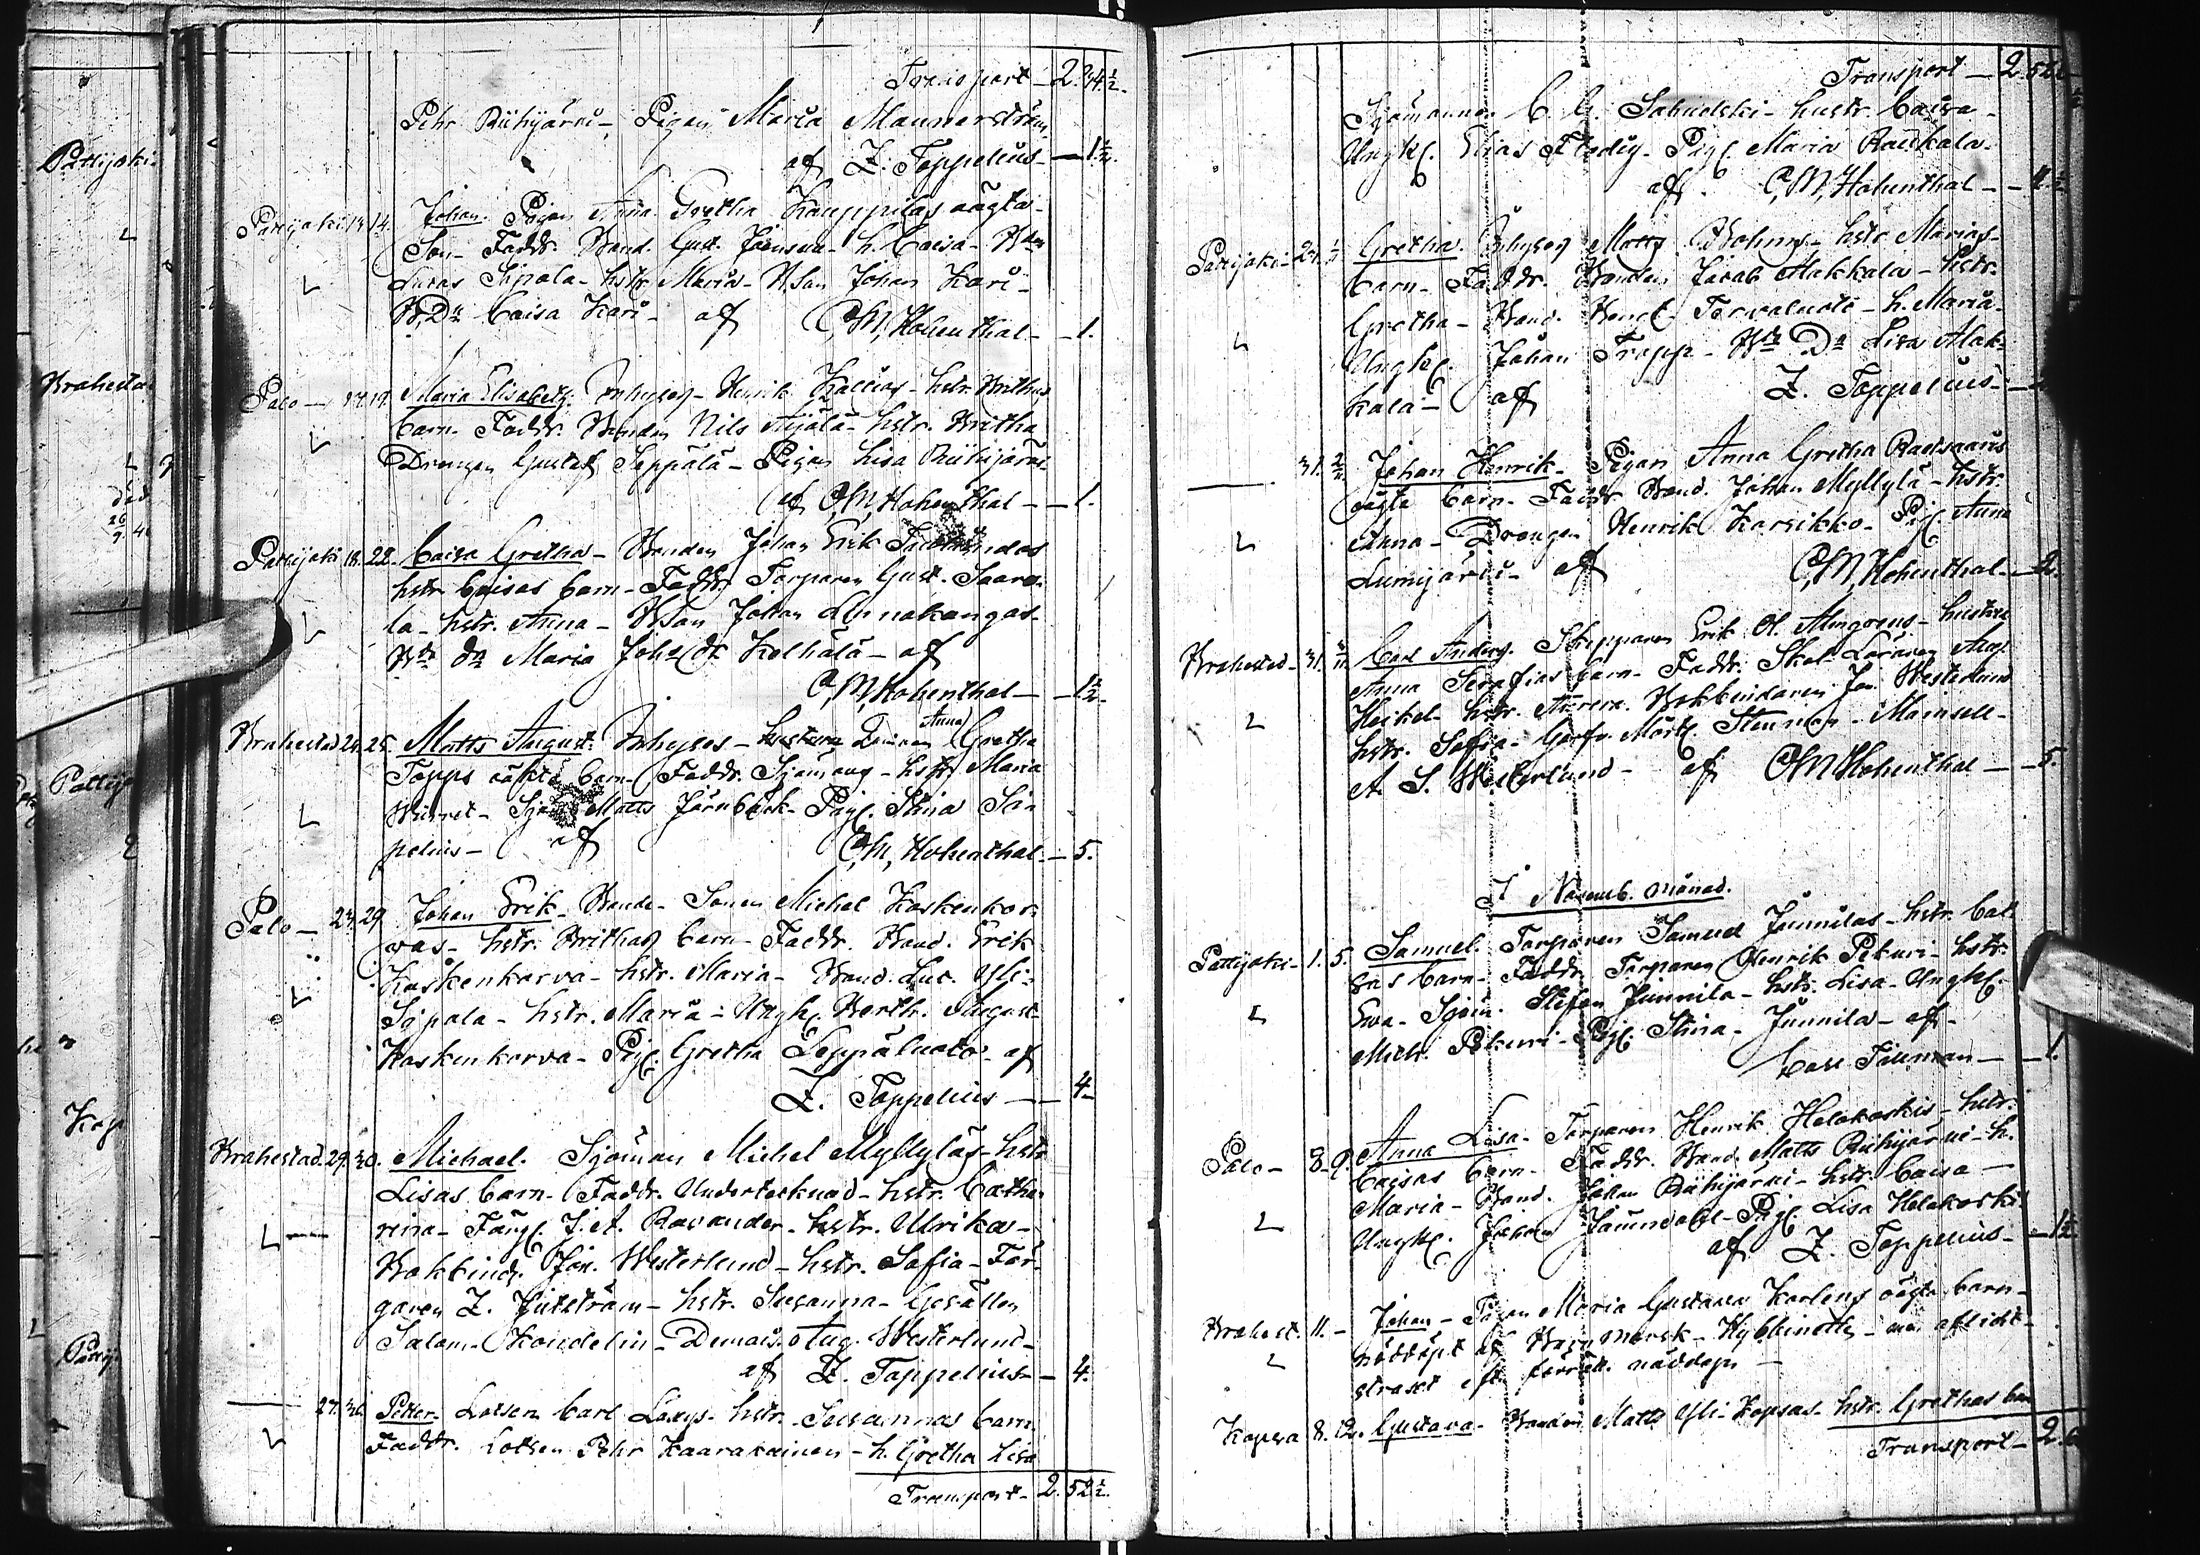 Transport - 2.24½.
Pehr Riihijärvi - Pigan Maria Mannerström
af Z. Toppelius - 1½.
Pattijoki
Pattijoki 13. 14. Johan. Pigan Anna Gretha Kauppilas oägta
Son - Faddr. Bond. Gust. - h. Caisa -
Lucas Sipola - hstr. Maria - B.Son Johan Kari -
B.Dr Caisa Kari - af C.M. Hohenthal - 1.
Brahesta
Salo - 17. 19. Maria Elisabeth. Inhyses - Henrik - hstr. Brithas
barn - Faddr. Bonden Nils Äijälä - hstr. Britha
Drengen Gustaf Seppälä - Pigan Lisa Riihijärvi
af C.M. Hohenthal - 1.
Pattijoki 18. 22. Caisa Gretha - Bonden Johan Erik
hstr. Caisas barn - Faddr. Torparen Gust. Saare-
la - hstr. Anna - B.Son Johan Linnakangas -
Maria Kolhälä - af
C.M. Hohenthal - 1½.
Brahestad 24. 25. Matts August. Inhyses - Anna Gretha
Topps oäkta barn - Faddr. Sjömans - hstr. Maria
Sjöm. Matts Järnbäck - Pig. Stina Sip-
pelius - af C.M. Hohenthal - 5.
Pattij
Salo - 23. 29. Johan Erik - Bonde-Sonen Michel Koskenkor-
vas - hstr. Brithas barn - Faddr. Bond. Erik
Koskenkorva - hstr. Maria - Bond. Luc. Yli-
Sipola - hstr. Maria - Ungk. Berth. August
Koskenkorva - Pig. Gretha Leppäluoto - af
Z. Toppelius - 4.
Brahestad 29. 30. Michael. Sjöman Michel Myllyläs - hstr.
Lisas barn - Faddr. Undertecknad - hstr. Catha-
rina - Färg. J. A. Ravander - hstr. Ulrika -
Bokbind. Jon. Westerlund - hstr. Sofia - Får-
garen Z. - hstr. Susanna - Gesällen
Salom. Kondelin - Demois. Aug. Westerlund -
af Z. Toppelius - 4.
27. 30. Petter - Lotsen Carl - hstr. Susannas barn
Faddr. Lotsen Pehr Kaarakainen - h. Gretha Lisa
Transport - 2.52½.
Transport - 2.52½
Sjömannen C. G. - hustr. Caisa -
Ungk. Elias Flodig - Pig. Maria Raukala -
af C.M. Hohenthal -
Pattijoki - Gretha. Inhyses Matts - hstr. Marias -
barn - Faddr. Bonden Jacob Alakkala - hstr.
Gretha - Bond. Henr. Tervaluoto - h. Maria -
Ungk. Johan Trapp - Lisa Alak-
kala - af Z. Toppelius -
31. 2/11 Johan Henrik - Pigan Anna Gretha
oägta barn - Faddr. Bond. Johan Myllylä - hstr.
Anna - Drengen Henrik Karsikko - Pig. Anna
Lumijärvi - af C.M. Hohenthal - 2.
Brahestad - 31. Carl Anders. Skepparen Erik - hustru
Anna Serafias barn - Faddr. Skol-Läraren Aug.
Heikel - hstr. Aurora. Bokbindaren Jon. Westerlund
hstr. Sofia - Garfv. Mårt. Stenman - Mamsell
A. S. Westerlund - af C.M. Hohenthal - 5.
I Novemb. månad.
Pattijoki - 1. 5. Samuel. Torparen Samuel Junnilas - hstr.
barn - Faddr. Torparen Henrik Pekuri - hstr.
Ewa - Sjöm. Stefan Junnila - hstr. Lisa - Ungk.
Mich. Pekuri - Pig. Stina Junnila - af
Carl - 1.
Salo - 8. 9. Anna Lisa - Torparen Henrik Helakoskis - hstr.
Caisas barn - Faddr. Bond. Matts Riihijärvi - h.
Maria - Bond. Johan Riihijärvi - hstr. Caisa -
Ungk. Johan - Pig. Lisa Helakoski
af Z. Toppelius - 1½.
Brahest. 11. - Johan - Pigan Maria Gustava Karlens oägta barn -
nöddöpt af Barn-morsk - men afled
straxt eft. förrätt. nöddop -
Kopsa 8. 12. Gustava - Bonden Matts Yli-Kopsas - hstr. Grethas barn
Transport - 2.